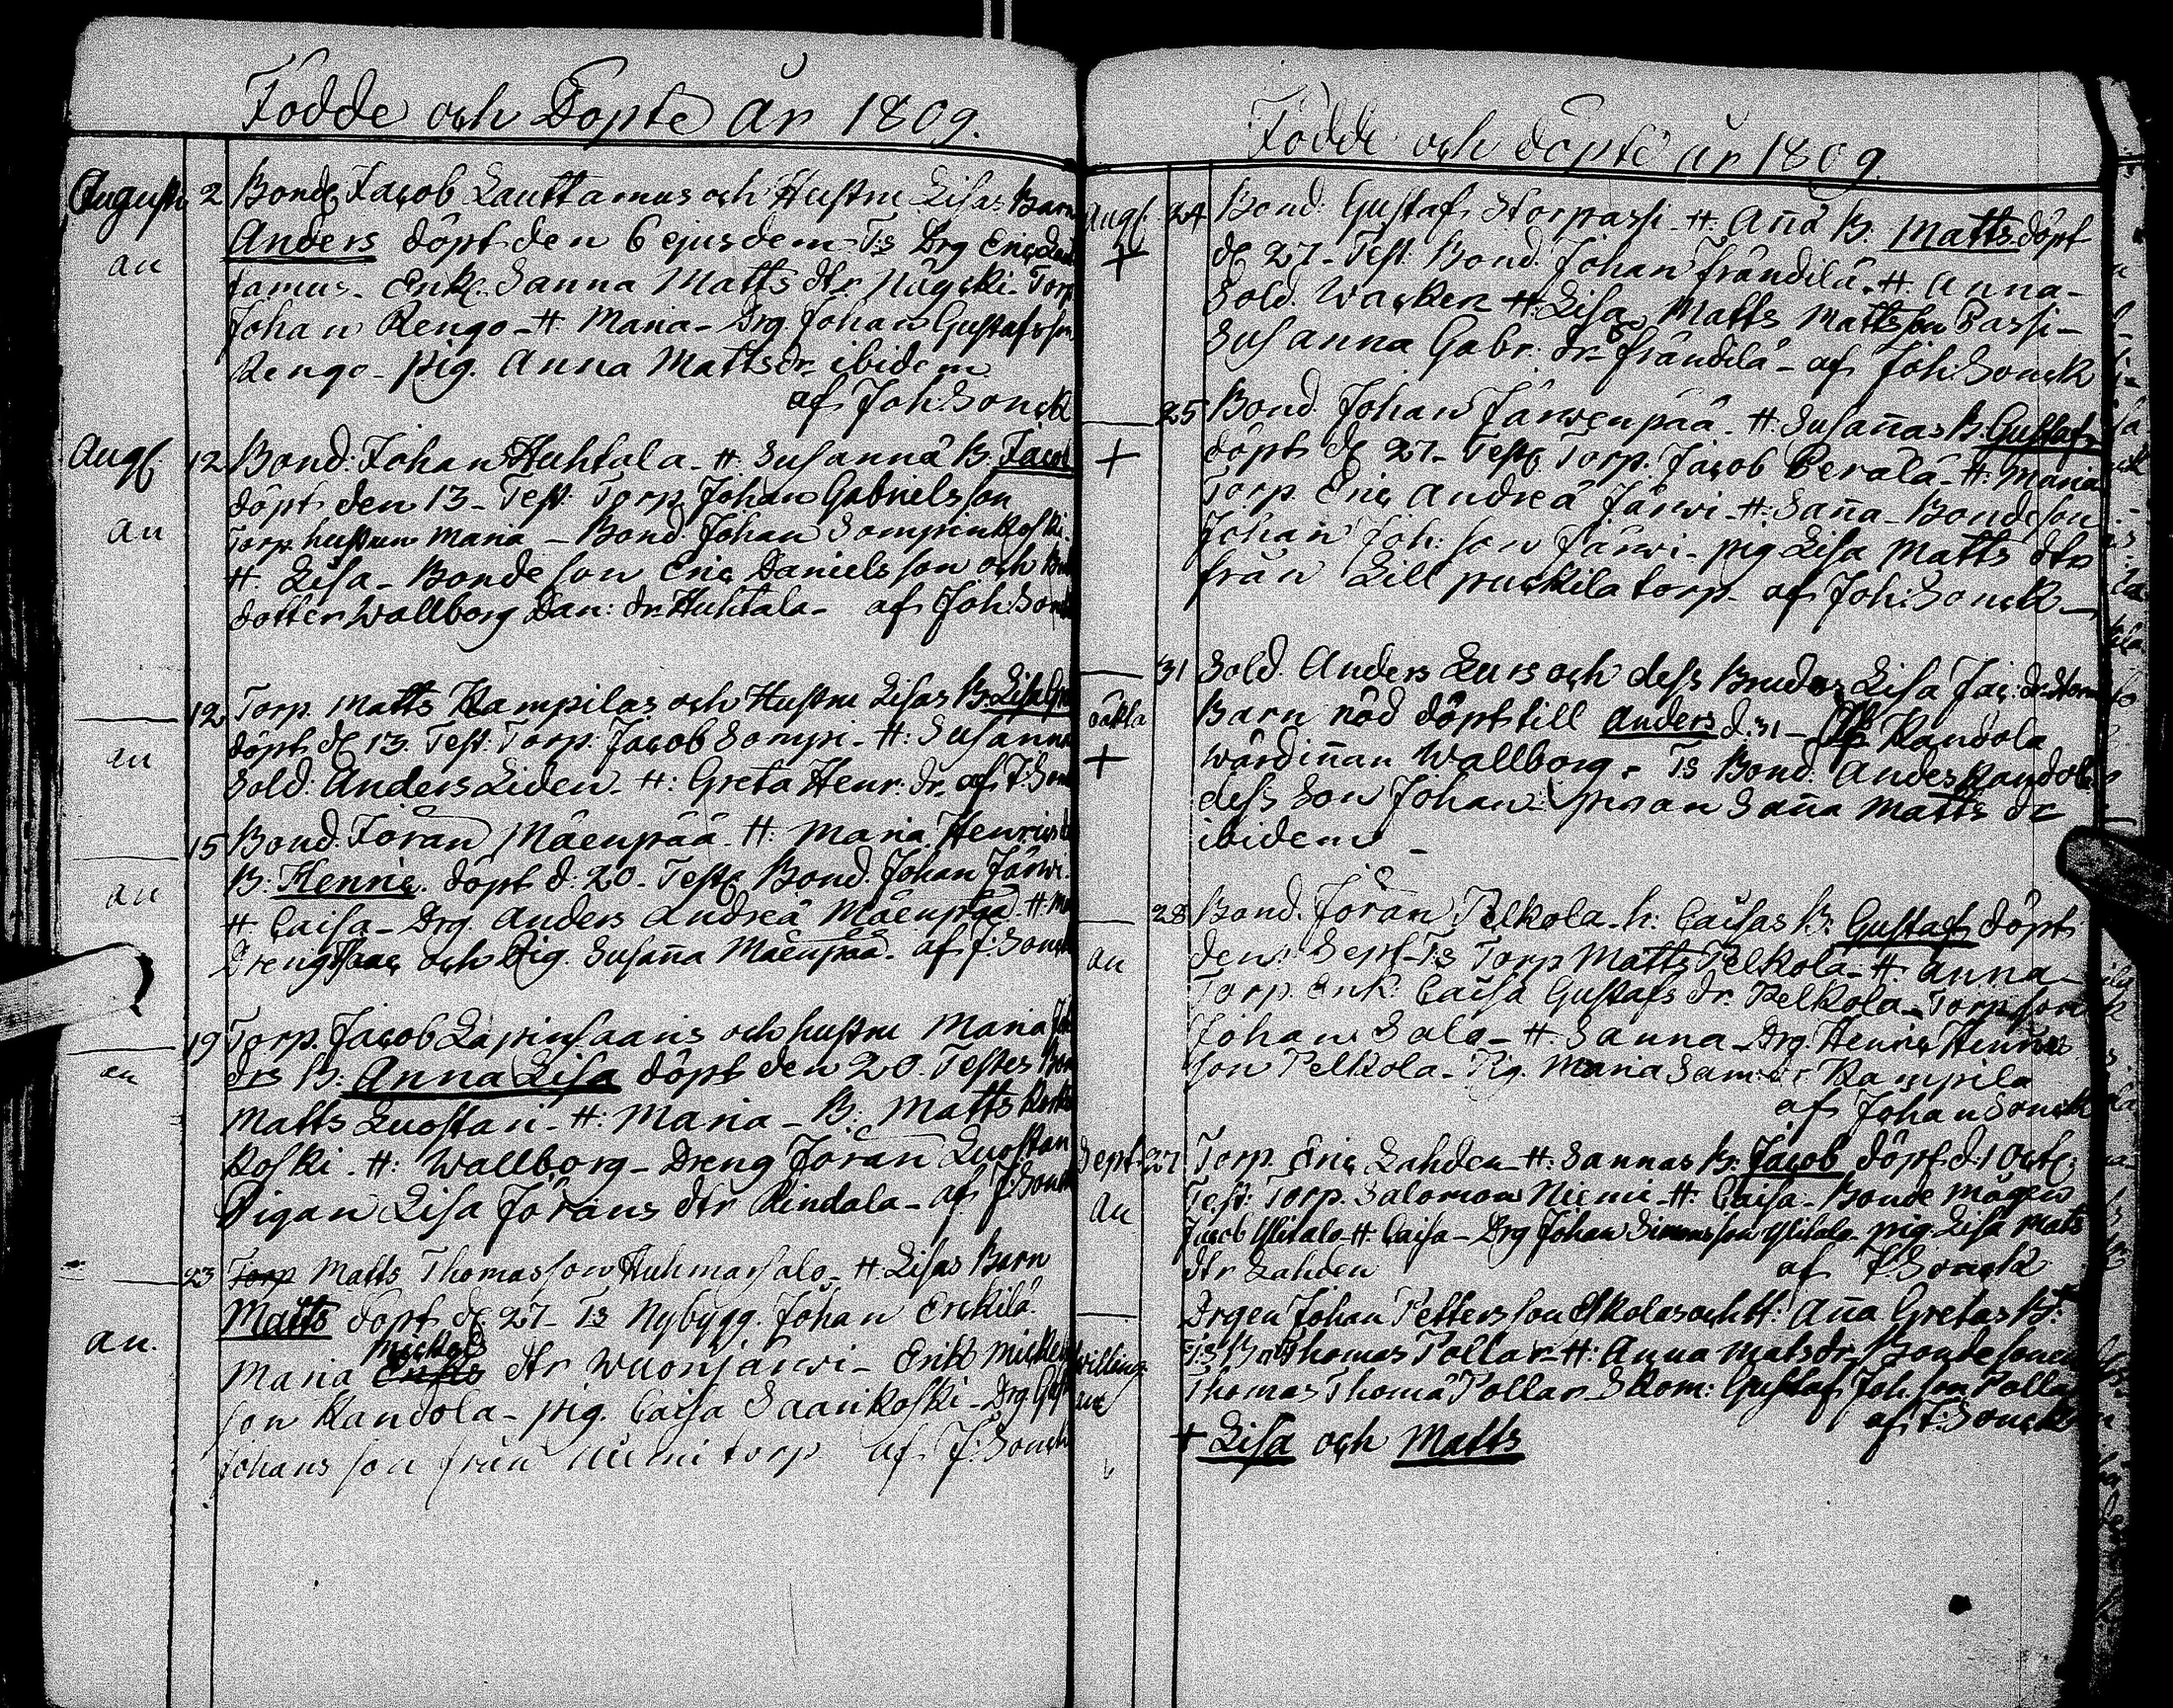 Födde och Döpte År 1809.
Augusti 2 Bond: Jacob Lauttamus och Hustru Lisas Barn
an Anders döpt den 6 ejusdem Ts Drg Eric Laut
tamus. Enk: Sanna Matts dtr Torp
Johan Rengo - H Maria - Drg. Johan Gustafsson
Rengo - pig. Anna Mattsdr ibidem
af Joh: Sonck
Aug: 12 Bond: Johan Huhtala - H: Susanna B. Jacob
an döpt den 13 - Test: Torp. Johan Gabrielsson
Torp. hustrun Maria - Bond Johan Sompenkoski
H Lisa - Bonde son Eric Daniels son och
dotter Wallborg Dan: dr Huhtala - af Joh: Sonck
12 Torp Matts Kampilas och Hustru Lisas B: Lisa
an döpt d: 13. Test: Torp: Jacob Sompi - H: Susanna
Sold: Anders Liden - H: Greta Henr: dr af J: Sonck
15 Bond: Jöran Mäenpää - H: Maria Henrics
an B: Henric. döpt d: 20 - Test: Bond. Johan Järwi
H Caisa - Drg. Anders Andreä Mäenpää - H
Dreng Isaac och Pig. Susaña Mäenpää - af J: Sonck
19 Torp. Jacob Lapinsaaris och hustru Maria
an drs B: Anna Lisa döpt den 20. Testes
Matts Luostari - H: Maria - B: Matts
koski - H: Wallborg - Dreng Jöran Luostari
Pigan Lisa Jörans dtr Rindala - af J: Sonck
23 Torp Matts Thomasson Huhmarsalo - H: Lisas Barn
Matts döpt d: 27 - Ts Nybygg. Johan Erckilä
an. Mickels
Maria dtr Wuorijärwi - Erik Mickels
son Kandola - pig. Caisa Saarikoski - Drg
Johans son från Nurmi torp af J: Sonck
Födde och döpte år 1809.
Aug: 24 Bond: Gustaf Storpassi - H: Aña B. Matts döpt
+ d: 27 - Test: Bond: Johan Frändilä - H: Anna -
Sold. Wacker H: Lisa Matts Mattsson Passi -
Susanna Gabr: dr Frändilä - af Joh: Sonck
25 Bond Johan Järwenpää - H: Susañas B. Gustaf
+ döpt d: 27 - Test: Torp. Jacob Perälä - H: Maria
Torp. Eric Andreä Järwi - H: Saña - Bondeson
Johan Joh: son Järwi - pig Lisa Matts dtr
från Lill puckila torp - af Joh: Sonck -
31 Sold. Anders Lurs och dess Brudes Lisa Jac: dr
oäkta Barn nöd döpt till Anders d: 31 - Af Kandola
+ wärdiñan Wallborg - Ts Bond: Anders Kandola
dess Son Johan - pigan Saña Matts dr
ibidem -
28 Bond. Jöran Pelkola - h: Caisas B: Gustaf döpt
an den Sept - Ts Torp Matts Pelkola - H: Anna -
Torp. Enk: Caisa Gustafs dr. Pelkola - Torp son
Johan Salo - H: Sanna - Drg. Henric Henrics
son Pelkola - Pig. Maria Sam: dr Kampila
af Johan Sonck
Sept: 27 Torp. Eric Lahden - H: Sannas B: Jacob döpt d: 1 Oct:
an Test: Torp. Salomon Niemi - H: Caisa - Bonde mågen
Jacob Ylitalo - H Caisa - Drg Johan Simonsson Ylitalo - pig. Lisa Mats
dtr Lahden af J: Sonck
Drgen Johan Pettersson Eskolas och H: Aña Gretas B: +
Twilling: Ts Thomas Pollar - H: Anna Matsdr - Bondesonen
ar Thomas Thomä Pollar. Skom: Gustaf Joh. son Polla
af J: Sonck
+ Lisa och Matts